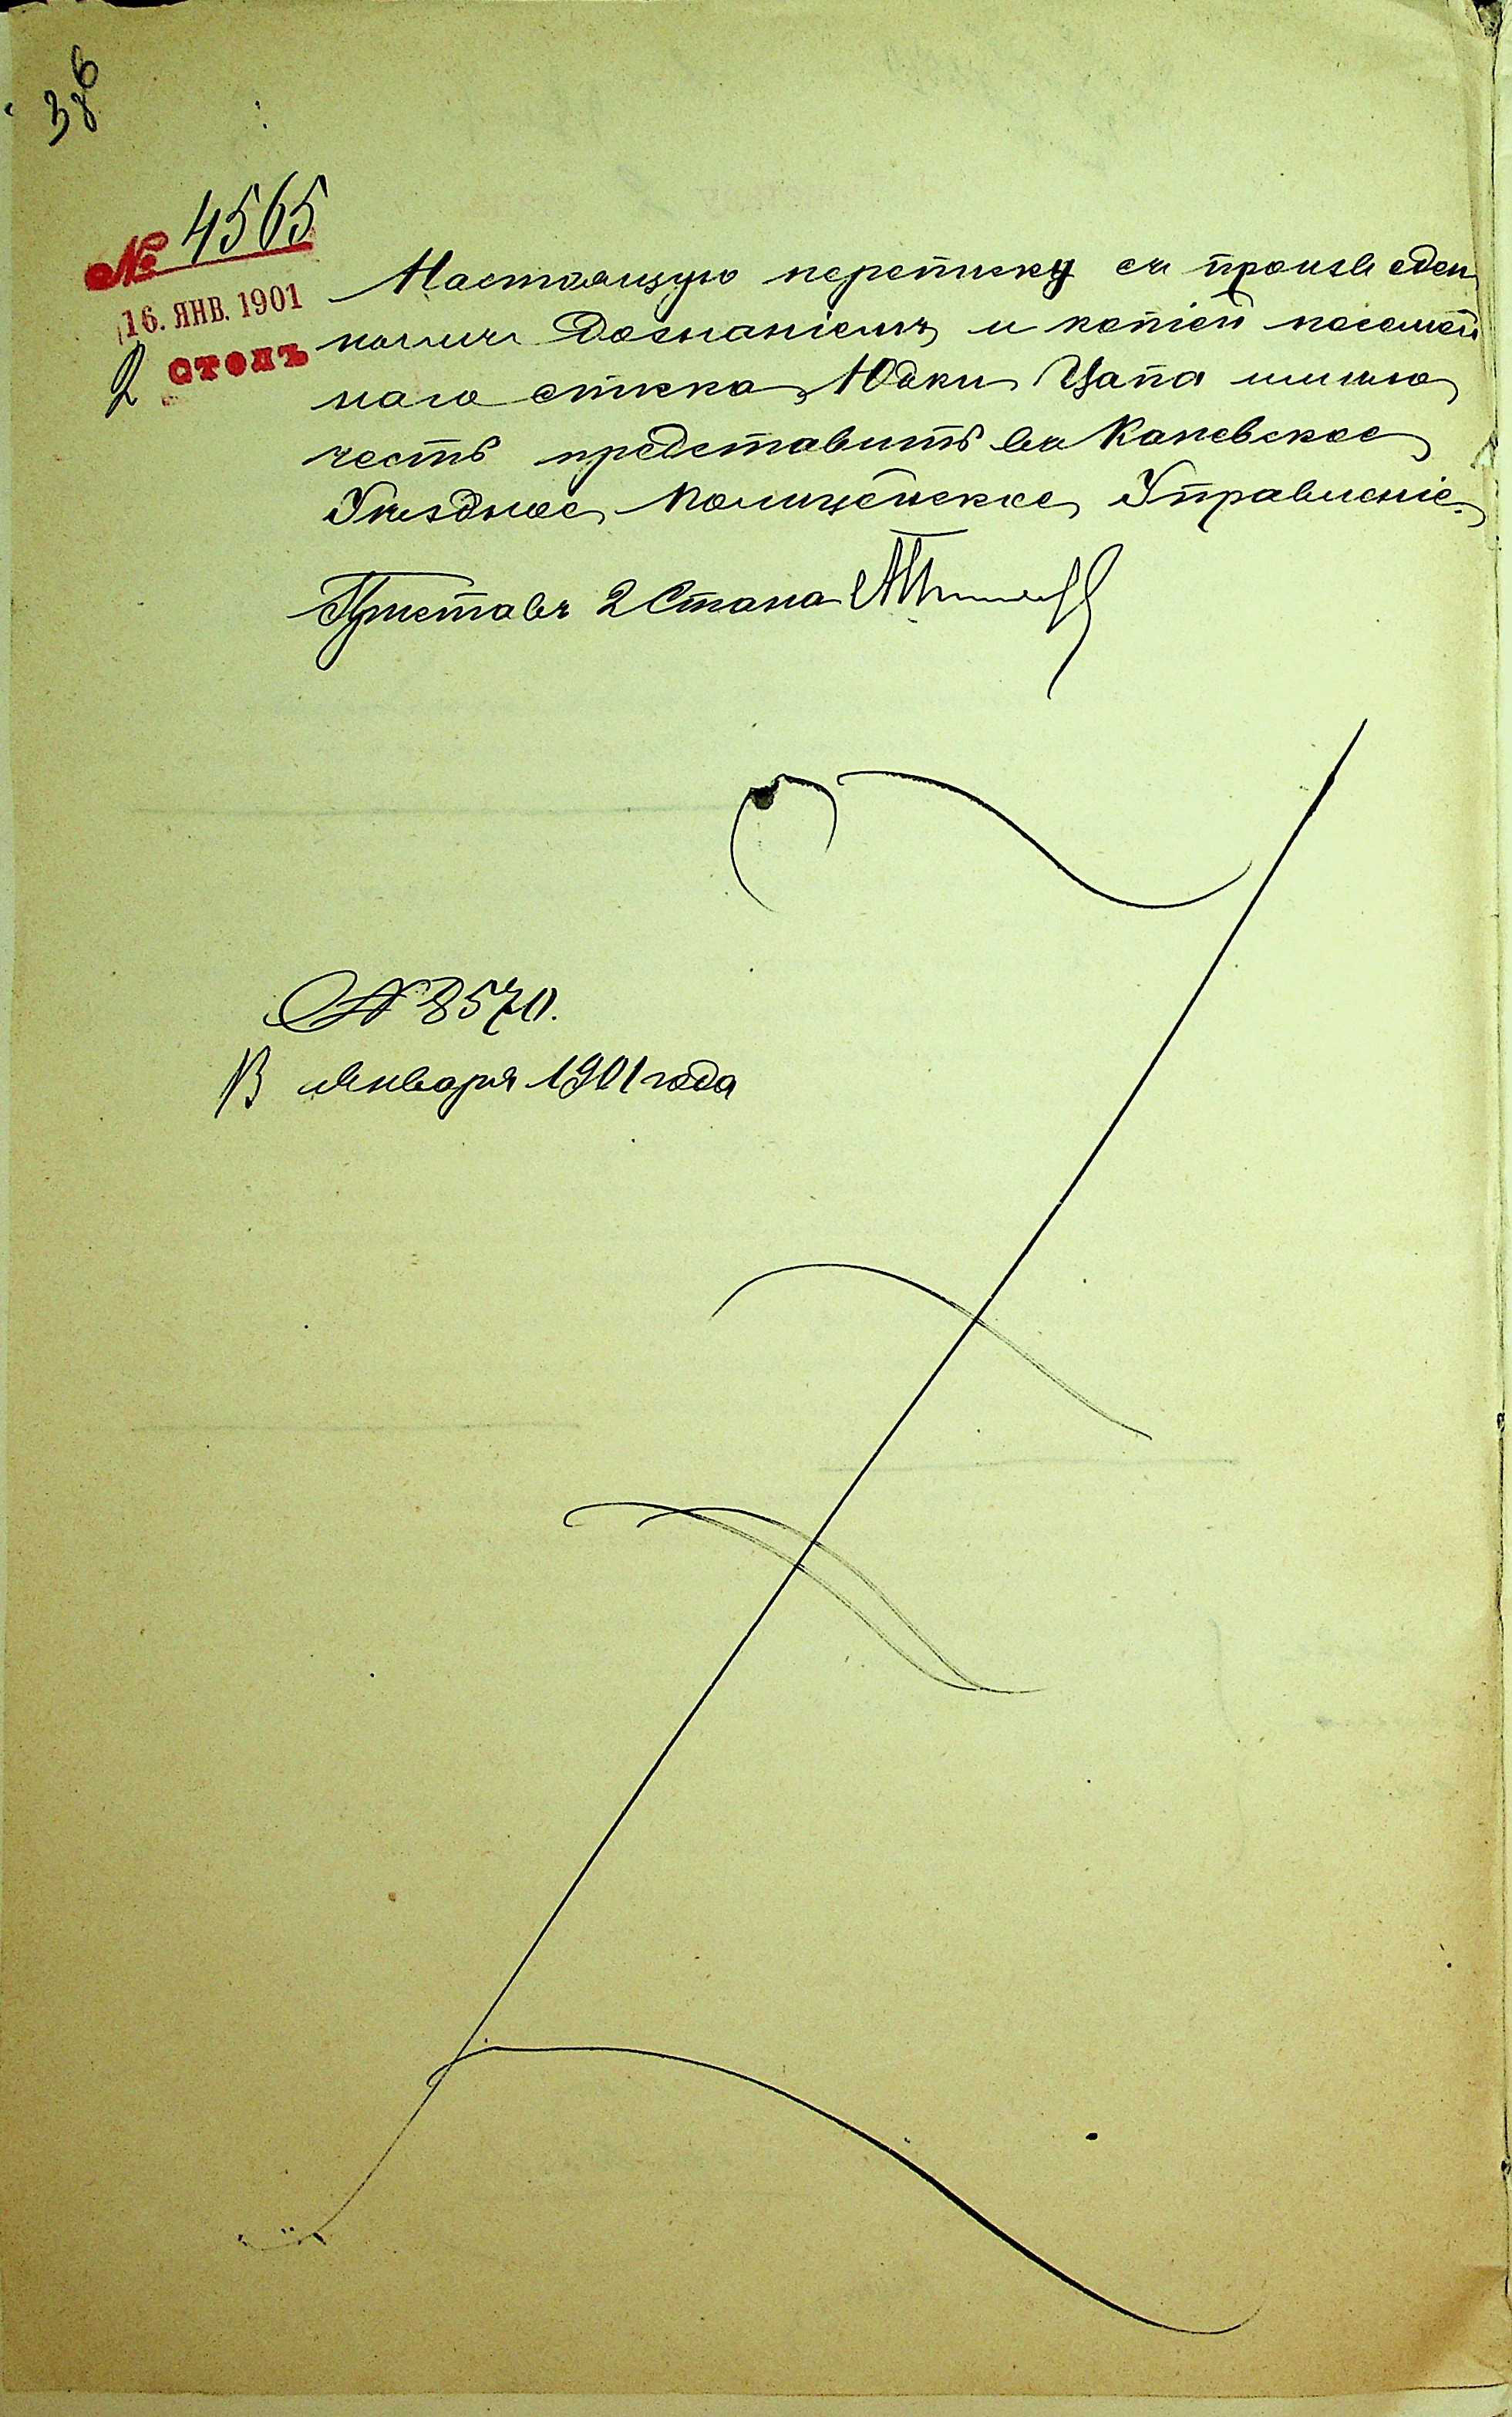 № 4565
16. ЯНВ. 1901
2 столъ
Настоящую переписку съ произведен
нымъ дознаніемъ и копіей посемей
наго списка Юдки Цапа имѣю
честь представить въ Каневское
Уѣздное Полицейское Управленіе.
Приставъ 2 Стана
№ 8570.
13 января 1901 года